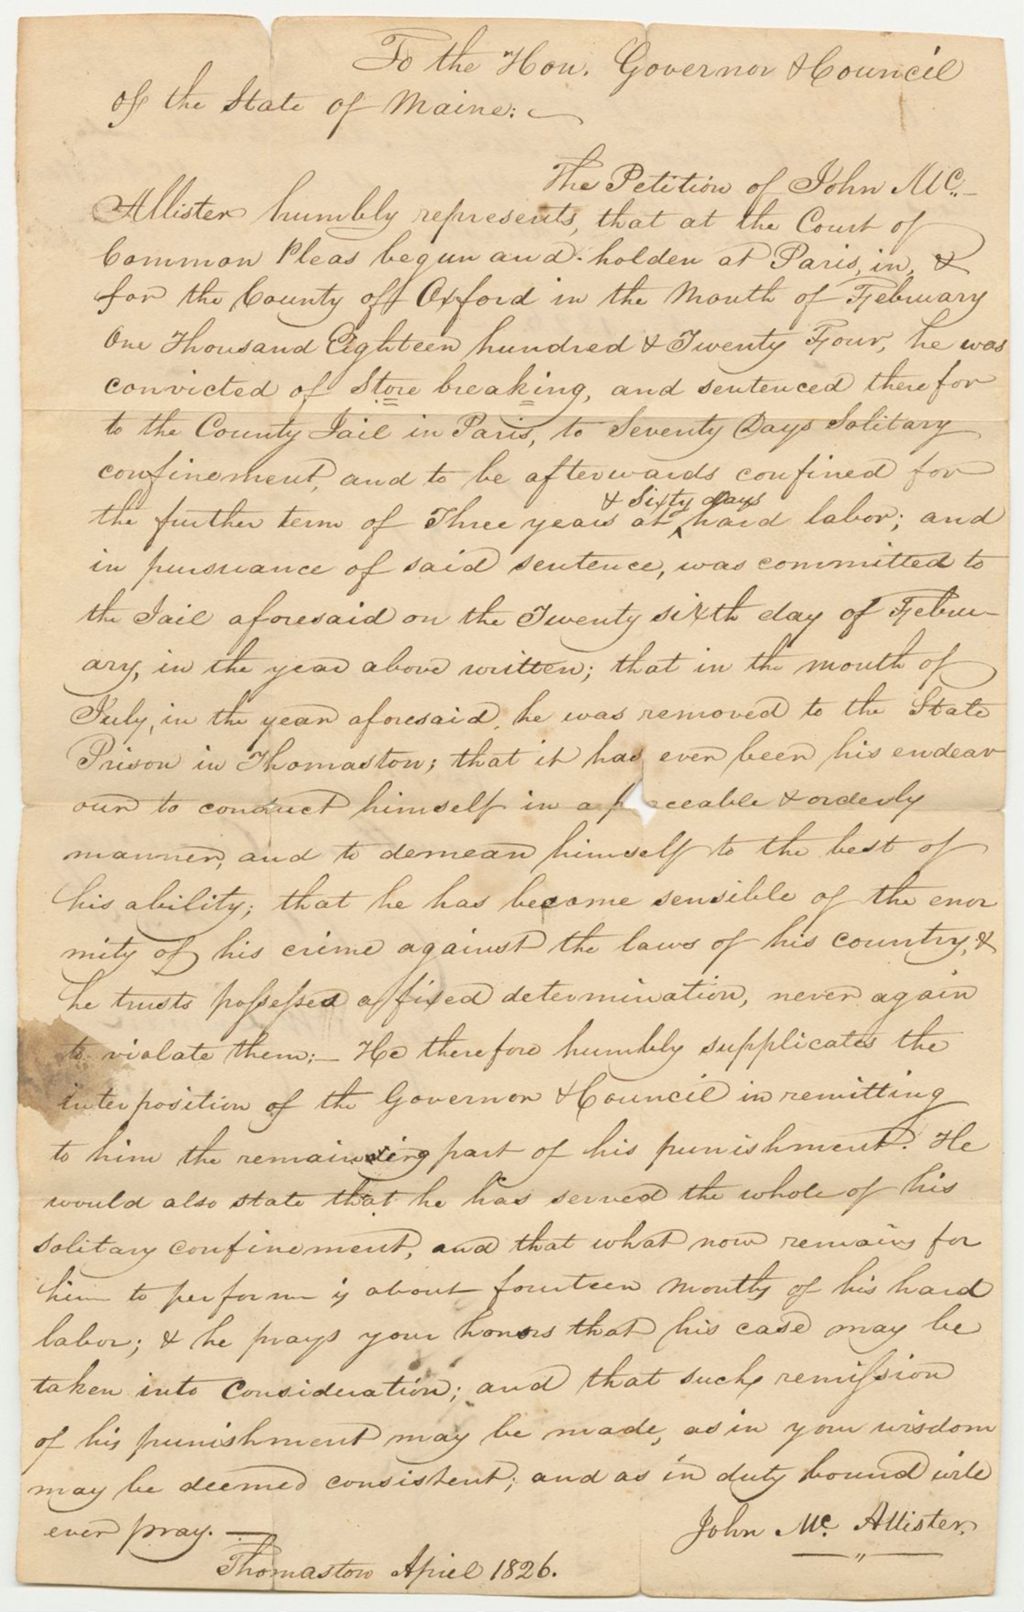 To the Hon. Governor & Council
of the State of Maine:
The Petition of John Mc.
Allister humbly represents, that at the Court of
Common Pleas begun and holden at Paris, in, &
for the County of Oxford in the Month of February
One Thousand Eighteen hundred & Twenty Four, he was
convicted of Store breaking, and sentenced therefor
to the County Jail in Paris, to Seventy Days Solitary
confinement, and to be afterwards confined for
& Sixty days
the further term of Three years at ^ hard labor; and
in pursuance of said sentence, was committed to
the Jail aforesaid on the Twenty sixth day of Febru-
ary, in the year above written; that in the month of
July, in the year aforesaid, he was removed to the State
Prison in Thomaston; that it has ever been his endeav
our to conduct himself in a p ceable & orderly
manner, and to demean himself to the best of
his ability; that he has become sensible of the enor
mity of his crime against the laws of his country, &
he trusts possessed a fixed determination, never again
to violate them:- He therefore humbly supplicates the
interposition of the Governor & Council in remitting
to him the remaining part of his punishment. He
would also state that he has served the whole of his
solitary confinement, and that what now remains for
him to perform is about fourteen months of his hard
labor; & he prays your honors that his case may be
taken into consideration; and that such remission
of his punishment may be made, as in your wisdom
may be deemed consistent; and as in duty bound will
ever pray.-
John Mc. Allister.
Thomaston April 1826.